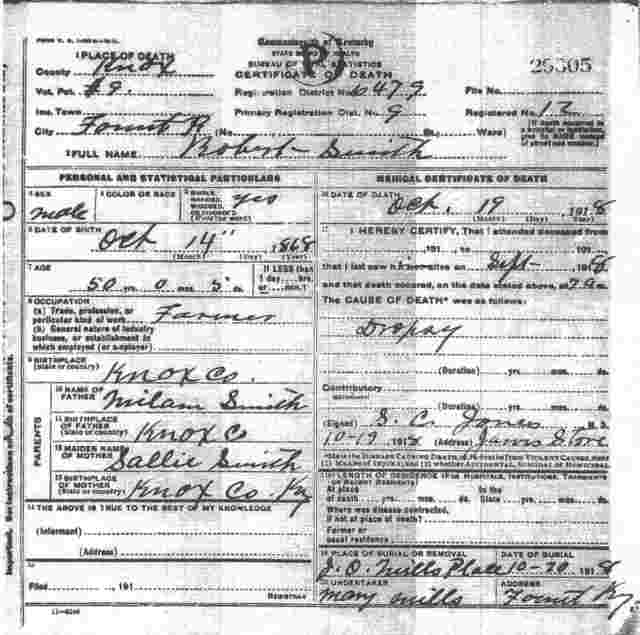 Commonwealth of Kentucky
STATE BOARD OF HEALTH
BUREAU OF VITAL STATISTICS
CERTIFICATE OF DEATH
1 PLACE OF DEATH
County Knox
Vot. Pct. #9
Inc. Town
City Fount Ky (No. St., Ward)
Registration District No. 6479
Primary Registration Dist. No. 9
File No. 25505
Registered No. 12
2 FULL NAME Robert Smith
PERSONAL AND STATISTICAL PARTICULARS
3 SEX male
4 COLOR OR RACE
5 SINGLE, MARRIED, WIDOWED, OR DIVORCED (Write the word) yes
6 DATE OF BIRTH Oct 14" 1868
(Month) (Day) (Year)
7 AGE 50 yrs. 0 mos. 5 ds.
If LESS than 1 day... hrs. or... min.?
8 OCCUPATION
(a) Trade, profession, or particular kind of work Farmer
(b) General nature of industry business, or establishment in which employed (or employer)
9 BIRTHPLACE (State or country) Knox Co.
PARENTS
10 NAME OF FATHER Milam Smith
11 BIRTHPLACE OF FATHER (State or country) Knox Co
12 MAIDEN NAME OF MOTHER Sallie Smith
13 BIRTHPLACE OF MOTHER (State or country) Knox Co. Ky
14 THE ABOVE IS TRUE TO THE BEST OF MY KNOWLEDGE
(Informant)
(Address)
15
Filed 191
REGISTRAR
11-6046
MEDICAL CERTIFICATE OF DEATH
16 DATE OF DEATH Oct, 19 1918
(Month) (Day) (Year)
17 I HEREBY CERTIFY, That I attended deceased from
, 191 , to , 191 ,
that I last saw h alive on Sept 1918,
and that death occurred, on the date stated above, at 7 a m.
The CAUSE OF DEATH* was as follows:
Dropsy
(Duration) yrs. mos. ds.
Contributory
(Duration) yrs. mos. ds.
(Signed) S. C. Jones M. D.
10-19 1918 (Address) Jarvis Store
*State the DISEASE CAUSING DEATH, or, in deaths from VIOLENT CAUSES, state (1) MEANS OF INJURY; and (2) whether ACCIDENTAL, SUICIDAL or HOMICIDAL.
18 LENGTH OF RESIDENCE (FOR HOSPITALS, INSTITUTIONS, TRANSIENTS OR RECENT RESIDENTS)
At place of death yrs. mos. ds. In the State yrs. mos. ds.
Where was disease contracted, if not at place of death?
Former or usual residence
19 PLACE OF BURIAL OR REMOVAL J. O. Mills Place
DATE OF BURIAL 10-20 1918
20 UNDERTAKER Many Mills
ADDRESS Fount Ky.